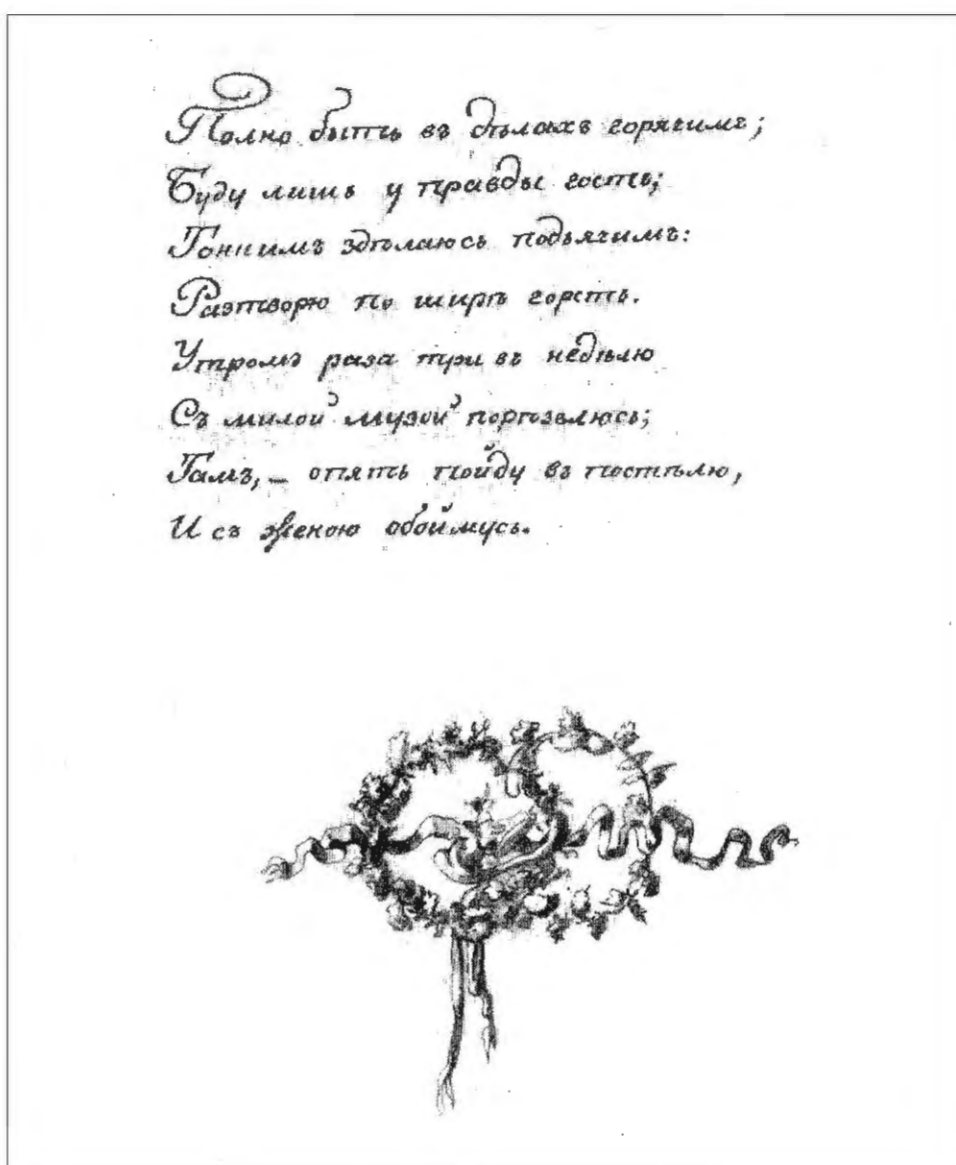 Полно быть въ дѣлахъ горячимъ;
Буду лишь у правды гость;
Тонкимъ здѣлаюсь подьячимъ:
Разтворю по ширѣ горсть.
Утромъ раза три въ недѣлю
Съ милой музой порѣзвлюсь;
Тамъ, — опять пойду въ постѣлю,
И съ женою обоймусь.